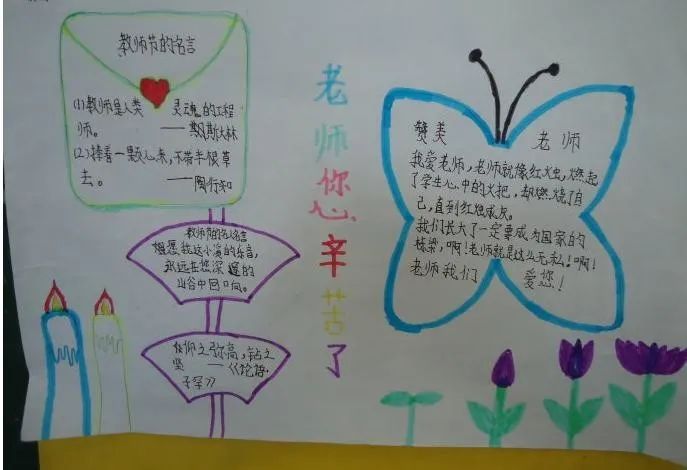 教师节的名言
(1)教师是人类 灵魂的工程
师。 ——斯大林
(2)捧着一颗心来,不带半根草
去。 ——陶行知
教师节的名人名言
想您我这小溪的乐音,
永远在您深邃的
山谷中回响。
仰之弥高,钻之
坚 ——《论语·
子罕》
老师您辛苦了
赞美 老师
我爱老师,老师就像红烛,燃起
了学生心中的火把,却燃烧了自
己,直到红烛成灰。
我们长大了一定要成为国家的
栋梁,啊!老师就是这么无私!啊!
老师我们 爱您!